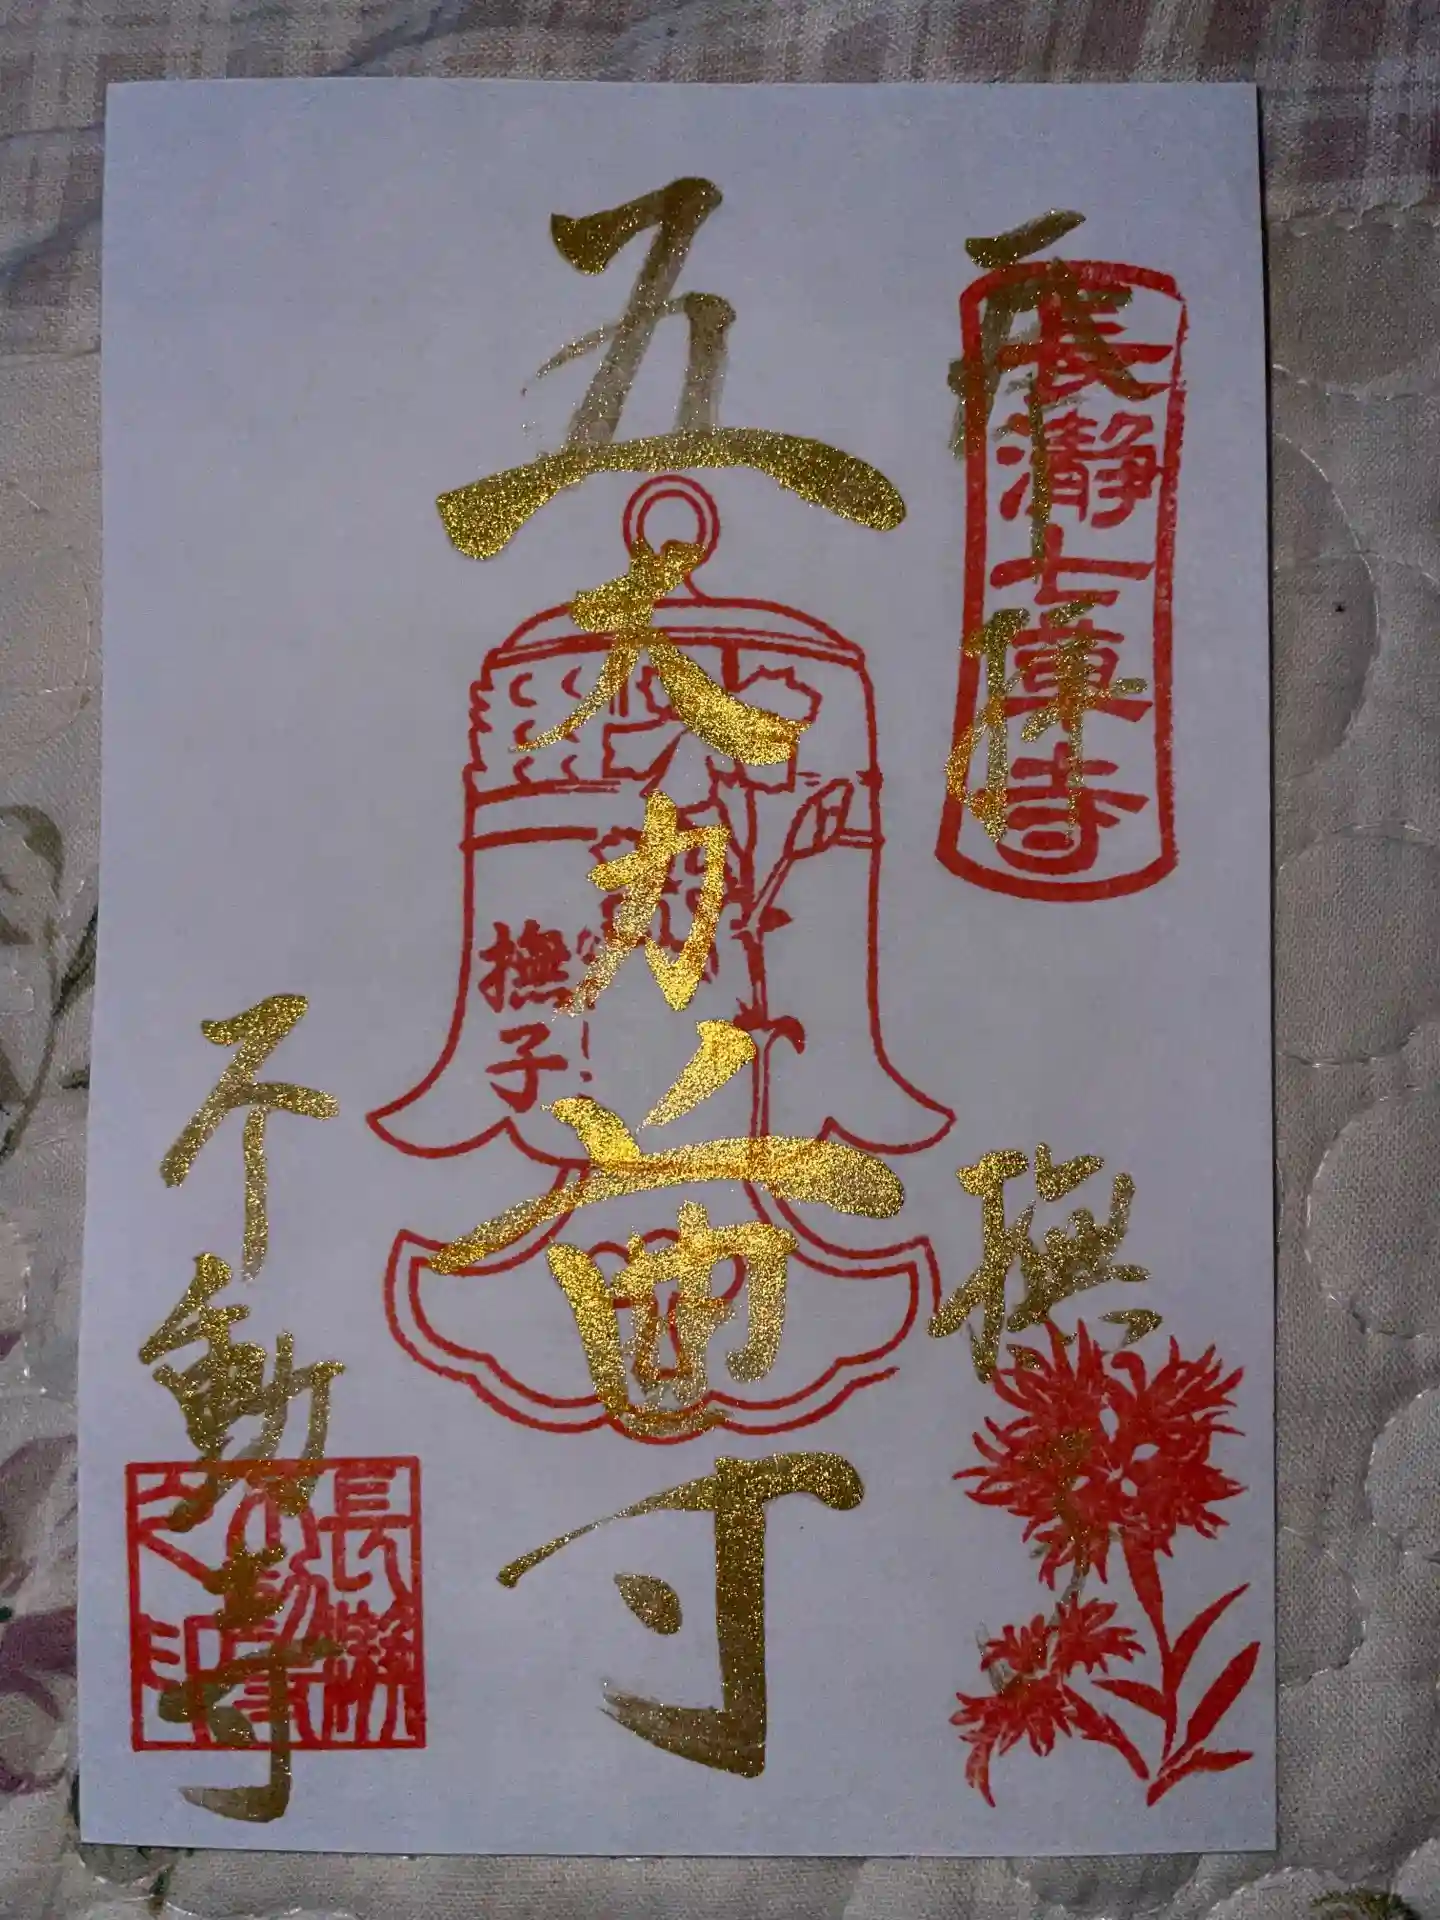 奉拝
長瀞七草寺
撫子
五大力尊
撫子
不動寺
長瀞不動寺之印